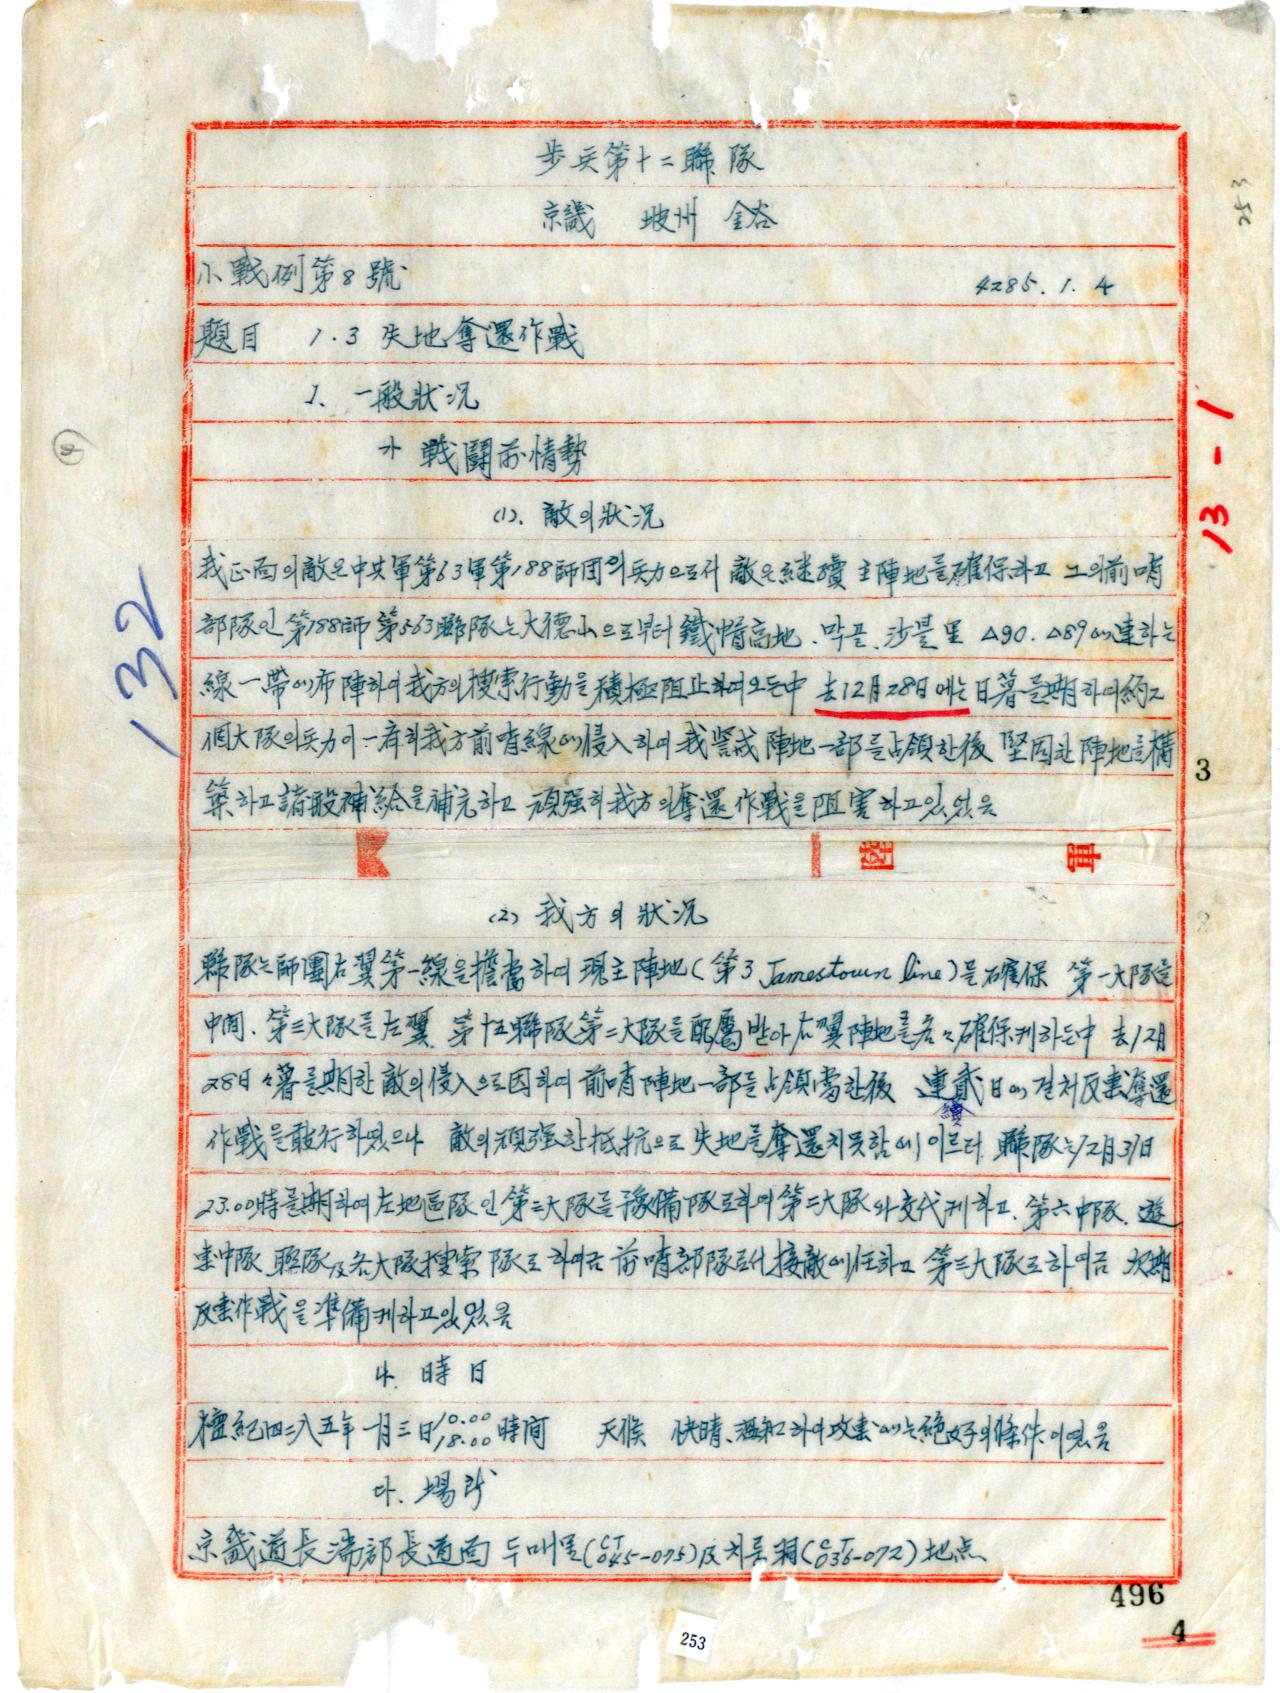 步兵第十二聯隊
京畿 坡州 金谷
小戰例第8號
4285.1.4
題目 1.3 失地奪還作戰
1. 一般狀況
가 戰鬪前情勢
(1). 敵의狀況
我正面의敵은中共軍第63軍第188師団의兵力으로서 敵은継續 主陣地를確保하고 그의前哨
部隊인 第188師 第563聯隊는大德山으로부터 鐵帽高地. 막골.沙是里 △90. △89에連하는
線一帶에布陣하여我方의搜索行動을積極阻止하여오든中 去12月28日에는日暮를期하여約2
個大隊의兵力이一斉히我方前哨線에侵入하여我警戒陣地一部를占領한後 堅固한陣地를構
築하고諸般補給을補充하고 頑强히我方의奪還作戰을阻害하고있었음
陸 軍
(2) 我方의狀況
聯隊는師團右翼第一線을擔當하여 現主陣地(第3 Jamestown line)을確保 第一大隊를
中間. 第三大隊를左翼. 第十五聯隊第二大隊를配屬받아右翼陣地를各々確保케하든中 去12月
28日日暮를期한敵의侵入으로因하여前哨陣地一部를占領當한後 連貳日에걸처反擊奪還
續
作戰을敢行하였으나 敵의頑强한抵抗으로失地를奪還치못함에이르러 聯隊는12月31日
23.00時를期하여左地區隊인第三大隊를豫備隊로하여第二大隊와交代케하고. 第六中隊. 遊
擊中隊 聯隊及各大隊搜索隊로하여금前哨部隊로서接敵에任하고 第三大隊로하여금 次期
反擊作戰을準備케하고있었음
나. 時日
檀紀四二八五年一月三日10.00 18.00時間 天候 快晴.溫和하여攻擊에는絶好의條件이었음
다. 場所
京畿道長湍郡長道面 두매물(CT 045-075)及치룬洞(CT 036-072)地点
132
13-1
253
3
496
4
253